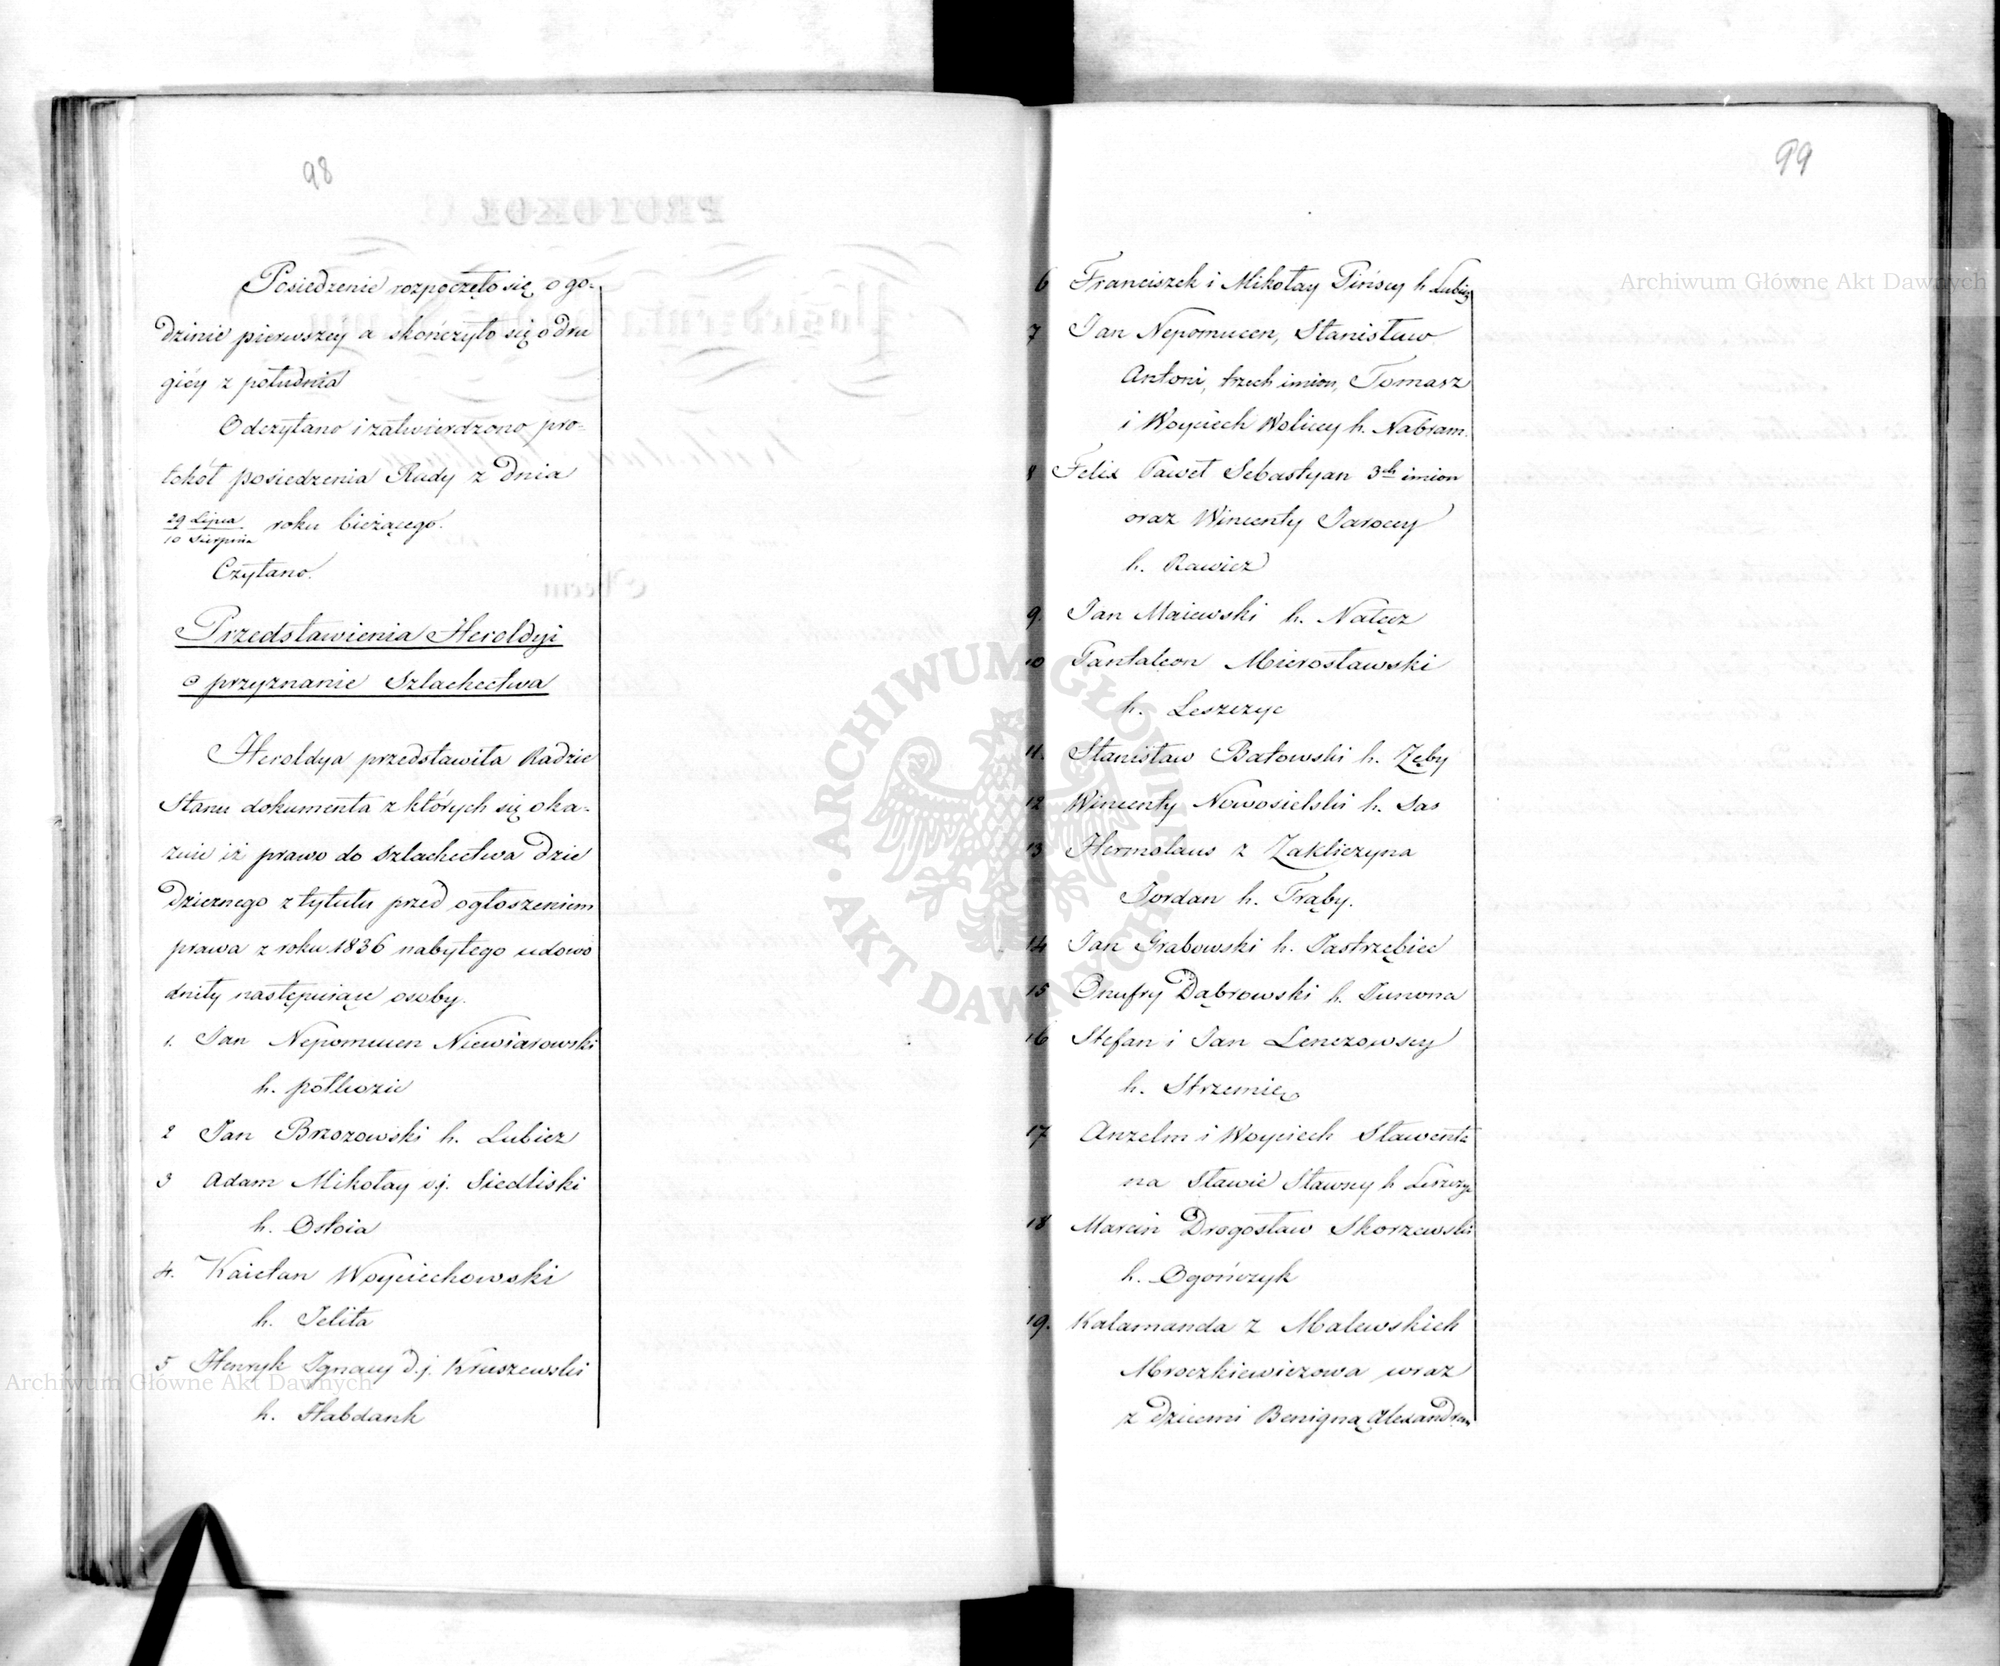 98
Posiedzenie rozpoczęło się o go-
dzinie pierwszey a skończyło się o dru
giéy z południa
Odczytano i zatwierdzono pro-
tokół posiedzenia Rady z dnia
29 Lipca
10 Sierpnia roku bieżącego.
Czytano.
Przedstawienia Heroldyi
o przyznanie Szlachectwa
Heroldya przedstawiła Radzie
Stanu dokumenta z których się oka-
zuie iż prawo do szlachectwa dzie
dzicznego z tytułu przed ogłoszeniem
prawa z roku 1836 nabytego udowo
dniły następuiące osoby.
1. Jan Nepomucen Niewiarowski
h. półkozic
2 Jan Brzozowski h. Lubicz
3 Adam Mikołay d.j. Siedliski
h. Ostoia
4. Kaietan Woyciechowski
h. Jelita
5 Henryk Ignacy d.j. Kruszewski
h. Habdank
99
6 Franciszek i Mikołay Pińscy h Lubicz
7 Jan Nepomucen, Stanisław
Antoni, trzech imion, Tomasz
i Woyciech Woliccy h. Nabram.
8 Felix Paweł Sebastyan 3ch imion
oraz Wincenty Jaroccy
h. Rawicz
9. Jan Maiewski h. Nałęcz
10 Pantaleon Mierosławski
h. Leszczyc
11. Stanisław Batowski h. Zęby
12 Wincenty Nowosielski h. Sas
13 Hermolaus z Zakliczyna
Jordan h. Trąby.
14 Jan Grabowski h. Jastrzębiec
15 Onufry Dąbrowski h. Junona
16 Stefan i Jan Lenczowscy
h. Strzemie
17 Anzelm i Woyciech Sławentz
na Sławie Sławscy h Leszczyc
18 Marcin Drogosław Skorzewski
h. Ogończyk
19. Kalamanda z Malewskich
Mroczkiewiczowa wraz
z dziećmi Benigną Alexandrem
Archiwum Główne Akt Dawnych
Archiwum Główne Akt Dawnych
ARCHIWUM GŁÓWNE AKT DAWNYCH